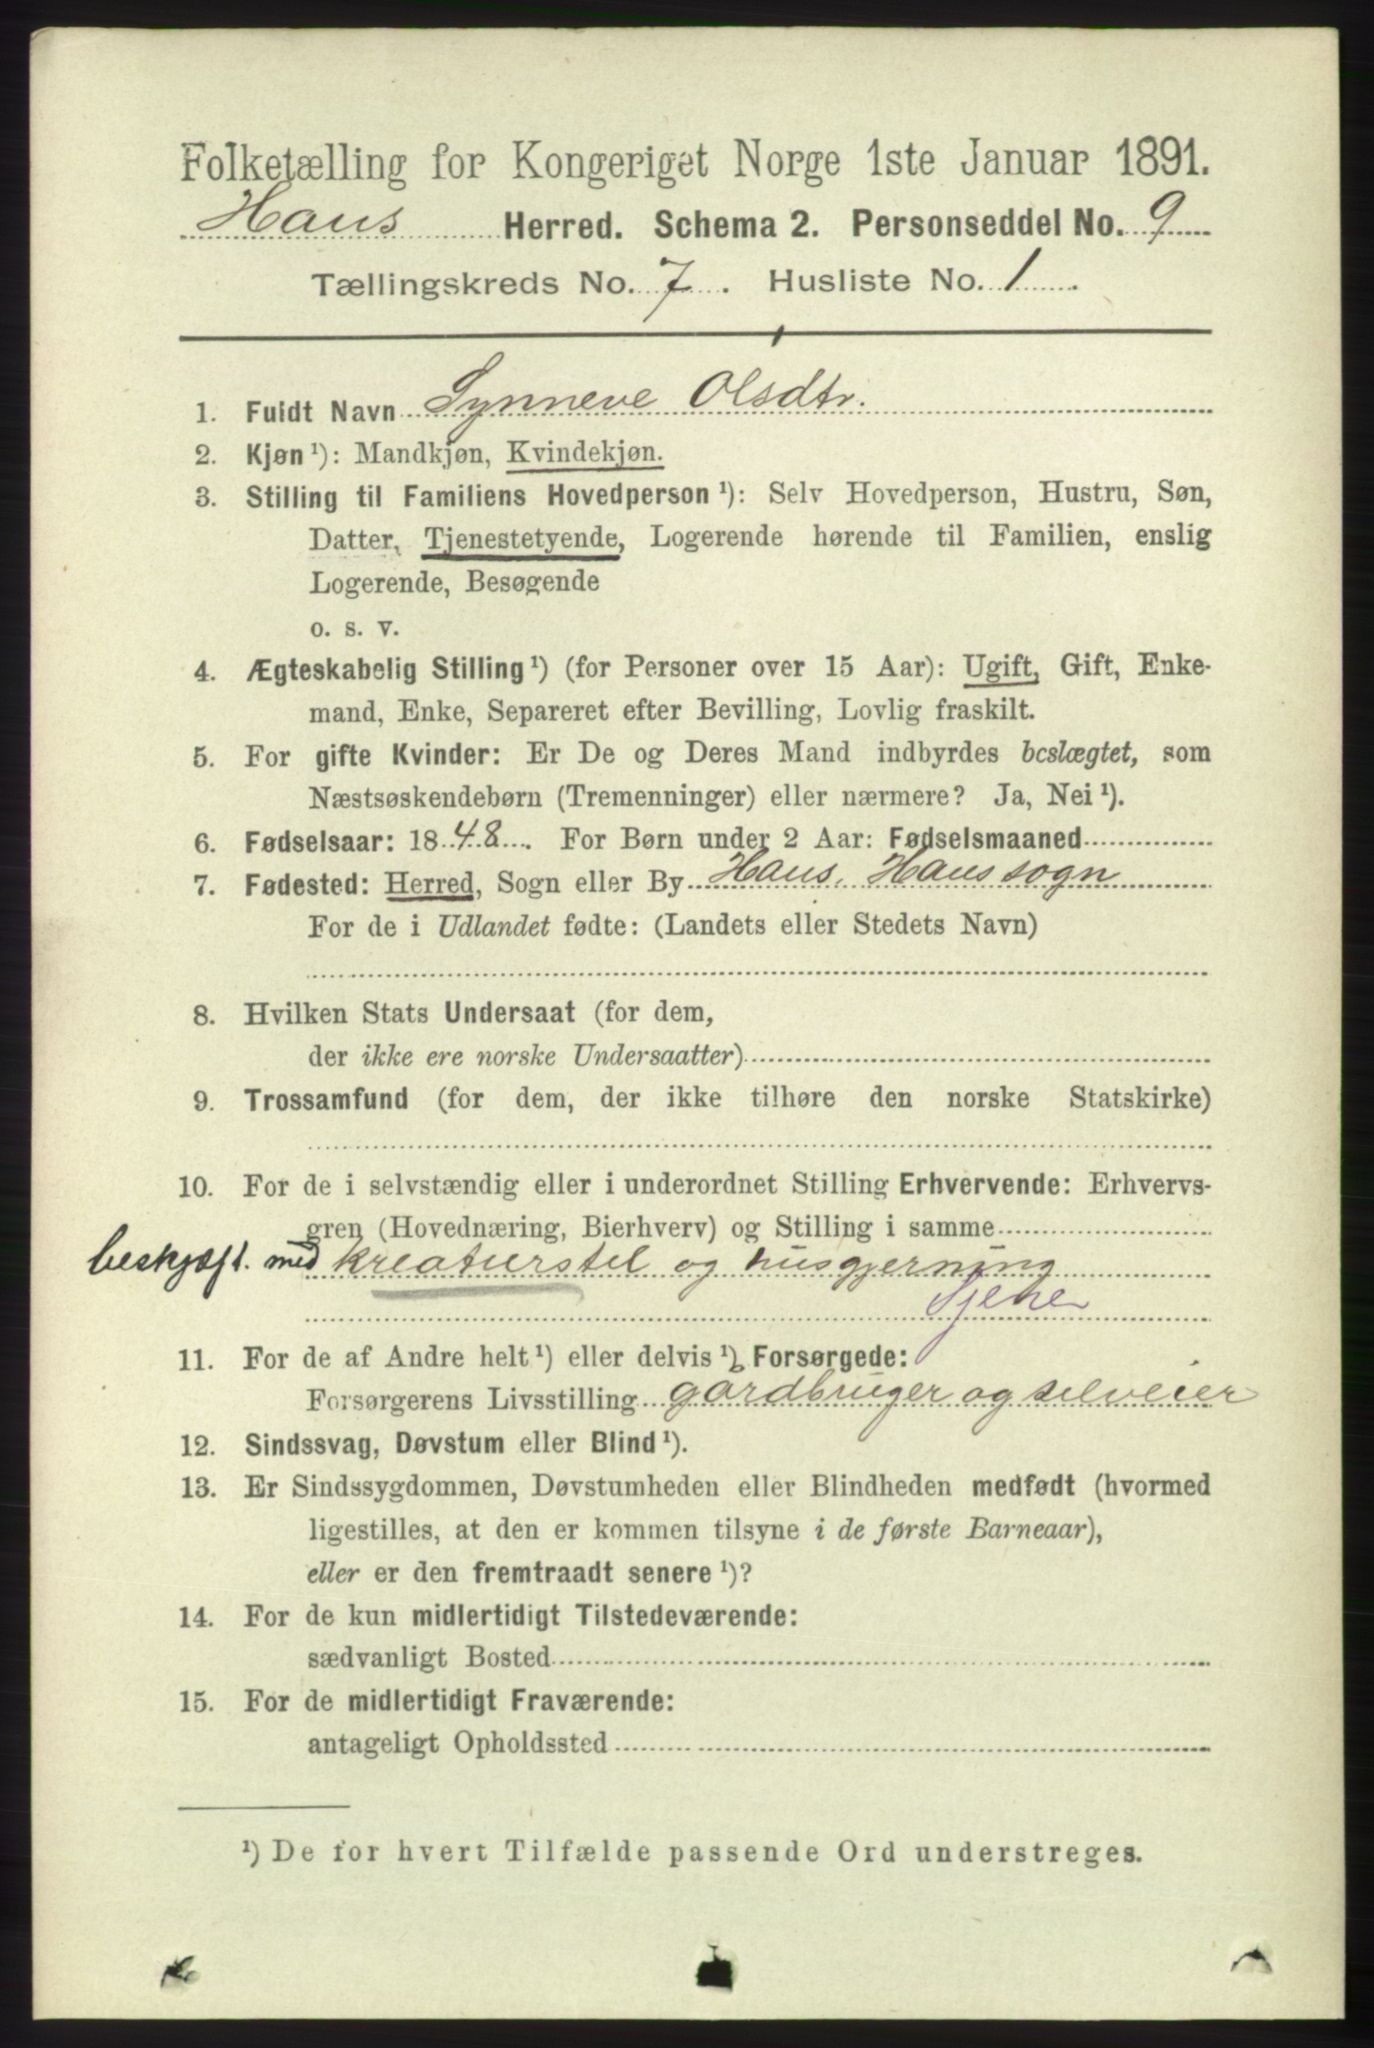 Folketælling for Kongeriget Norge 1ste Januar 1891.
Haus Herred. Schema 2. Personseddel No. 9
Tællingskreds No. 7. Husliste No. 1.
1. Fuldt Navn Synneve Olsdtr.
2. Kjøn ¹): Mandkjøn, Kvindekjøn.
3. Stilling til Familiens Hovedperson ¹): Selv Hovedperson, Hustru, Søn,
Datter, Tjenestetyende, Logerende hørende til Familien, enslig
Logerende, Besøgende
o. s. v.
4. Ægteskabelig Stilling ¹) (for Personer over 15 Aar): Ugift, Gift, Enke-
mand, Enke, Separeret efter Bevilling, Lovlig fraskilt.
5. For gifte Kvinder: Er De og Deres Mand indbyrdes beslægtet, som
Næstsøskendebørn (Tremenninger) eller nærmere? Ja, Nei ¹).
6. Fødselsaar: 1848. For Børn under 2 Aar: Fødselsmaaned
7. Fødested: Herred, Sogn eller By Haus, Haus sogn
For de i Udlandet fødte: (Landets eller Stedets Navn)
8. Hvilken Stats Undersaat (for dem,
der ikke ere norske Undersaatter)
9. Trossamfund (for dem, der ikke tilhøre den norske Statskirke)
10. For de i selvstændig eller i underordnet Stilling Erhvervende: Erhvervs-
gren (Hovednæring, Bierhverv) og Stilling i samme
beskjæft. med kreaturstel og husgjerning
Tjener
11. For de af Andre helt ¹) eller delvis ¹) Forsørgede:
Forsørgerens Livsstilling gårdbruger og selveier
12. Sindssvag, Døvstum eller Blind ¹).
13. Er Sindssygdommen, Døvstumheden eller Blindheden medfødt (hvormed
ligestilles, at den er kommen tilsyne i de første Barneaar),
eller er den fremtraadt senere ¹)?
14. For de kun midlertidigt Tilstedeværende:
sædvanligt Bosted
15. For de midlertidigt Fraværende:
antageligt Opholdssted
¹) De for hvert Tilfælde passende Ord understreges.